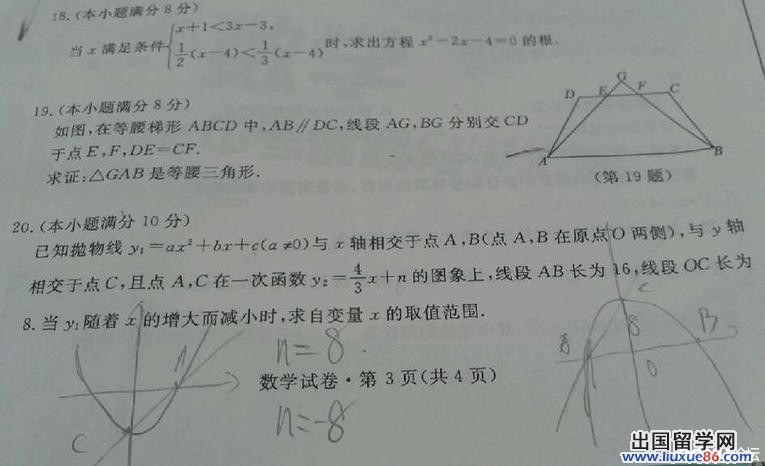 18.(本小题满分8分)
当x满足条件{x+1<3x-3, 1/2(x-4)<1/3(x-4) 时,求出方程 x²-2x-4=0 的根.
19.(本小题满分8分)
如图,在等腰梯形 ABCD 中,AB∥DC,线段 AG,BG 分别交 CD
于点 E,F,DE=CF.
求证:△GAB 是等腰三角形.
D E G F C
A B
(第 19 题)
20.(本小题满分 10 分)
已知抛物线 y₁=ax²+bx+c(a≠0)与 x 轴相交于点 A,B(点 A,B 在原点 O 两侧),与 y 轴
相交于点 C,且点 A,C 在一次函数 y₂=4/3x+n 的图象上,线段 AB 长为 16,线段 OC 长为
8.当 y₁ 随着 x 的增大而减小时,求自变量 x 的取值范围.
A
C
n=8.
n=-8
C
8
B
O
数学试卷·第 3 页(共 4 页)
出国留学网
www.liuxue86.com